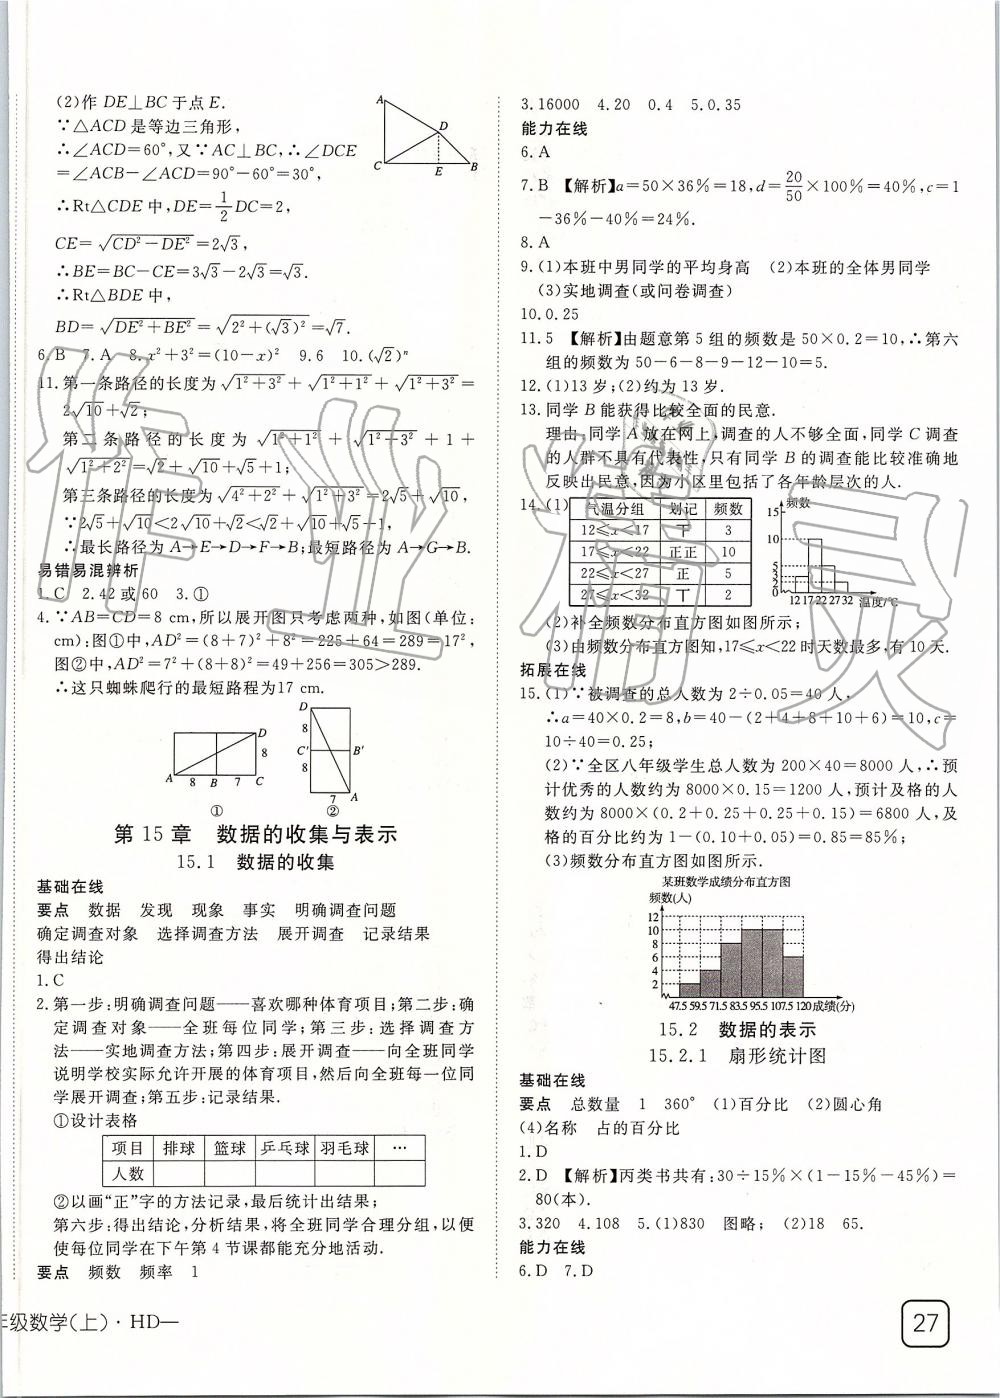 (2)作 DE⊥BC 于点 E.
∵△ACD 是等边三角形,
∴∠ACD=60°,又∵AC⊥BC,∴∠DCE
=∠ACB-∠ACD=90°-60°=30°,
∴Rt△CDE 中,DE=1/2 DC=2,
CE=√(CD²-DE²)=2√3,
∴BE=BC-CE=3√3-2√3=√3.
∴Rt△BDE 中,
BD=√(DE²+BE²)=√(2²+(√3)²)=√7.
A D C E B
6.B 7.A 8.x²+3²=(10-x)² 9.6 10.(√2)ⁿ
11.第一条路径的长度为√(1²+3²)+√(1²+1²)+√(1²+3²)=
2√10+√2;
第二条路径的长度为√(1²+1²)+√(1²+3²)+1+
√(1²+2²)=√2+√10+√5+1;
第三条路径的长度为√(4²+2²)+√(1²+3²)=2√5+√10,
∵2√5+√10<2√10+√2<√2+√10+√5+1,
∴最长路径为 A→E→D→F→B;最短路径为 A→G→B.
易错易混辨析
1.C 2.42 或 60 3.①
4.∵AB=CD=8 cm,所以展开图只考虑两种,如图(单位:
cm):图①中,AD²=(8+7)²+8²=225+64=289=17²,
图②中,AD²=7²+(8+8)²=49+256=305>289.
∴这只蜘蛛爬行的最短路程为17 cm.
D 8 A 8 B 7 C
①
D 8 C′ B′ 8 7 A
②
第 15 章 数据的收集与表示
15.1 数据的收集
基础在线
要点 数据 发现 现象 事实 明确调查问题
确定调查对象 选择调查方法 展开调查 记录结果
得出结论
1.C
2.第一步:明确调查问题——喜欢哪种体育项目;第二步:确
定调查对象——全班每位同学;第三步:选择调查方
法——实地调查方法;第四步:展开调查——向全班同学
说明学校实际允许开展的体育项目,然后向全班每一位同
学展开调查;第五步:记录结果.
①设计表格
项目 排球 篮球 乒乓球 羽毛球 …
人数
②以画“正”字的方法记录,最后统计出结果;
第六步:得出结论,分析结果,将全班同学合理分组,以便
使每位同学在下午第 4 节课都能充分地活动.
要点 频数 频率 1
3.16000 4.20 0.4 5.0.35
能力在线
6.A
7.B 【解析】a=50×36%=18,d=20/50×100%=40%,c=1
-36%-40%=24%.
8.A
9.(1)本班中男同学的平均身高 (2)本班的全体男同学
(3)实地调查(或问卷调查)
10.0.25
11.5 【解析】由题意第 5 组的频数是 50×0.2=10,∴第六
组的频数为 50-6-8-9-12-10=5.
12.(1)13 岁;(2)约为 13 岁.
13.同学 B 能获得比较全面的民意.
理由:同学 A 放在网上,调查的人不够全面,同学 C 调查
的人群不具有代表性,只有同学 B 的调查能比较准确地
反映出民意,因为小区里包括了各年龄层次的人.
14.(1)
气温分组 划记 频数
12≤x<17 𠄟 3
17≤x<22 正正 10
22≤x<27 正 5
27≤x<32 丅 2
频数
15
10
5
3
2
0 12 17 22 27 32 温度/℃
(2)补全频数分布直方图如图所示;
(3)由频数分布直方图知,17≤x<22 时天数最多,有 10 天.
拓展在线
15.(1)∵被调查的总人数为 2÷0.05=40 人,
∴a=40×0.2=8,b=40-(2+4+8+10+6)=10,c=
10÷40=0.25;
(2)∵全区八年级学生总人数为 200×40=8000 人,∴预
计优秀的人数约为 8000×0.15=1200 人,预计及格的人
数约为 8000×(0.2+0.25+0.25+0.15)=6800 人,及
格的百分比约为 1-(0.10+0.05)=0.85=85%;
(3)频数分布直方图如图所示.
某班数学成绩分布直方图
频数(人)
12
10
8
6
4
2
47.5 59.5 71.5 83.5 95.5 107.5 120 成绩(分)
15.2 数据的表示
15.2.1 扇形统计图
基础在线
要点 总数量 1 360° (1)百分比 (2)圆心角
(4)名称 占的百分比
1.D
2.D 【解析】丙类书共有:30÷15%×(1-15%-45%)=
80(本).
3.320 4.108 5.(1)830 图略; (2)18 65.
能力在线
6.D 7.D
年级数学(上)·HD—
27
作业精灵